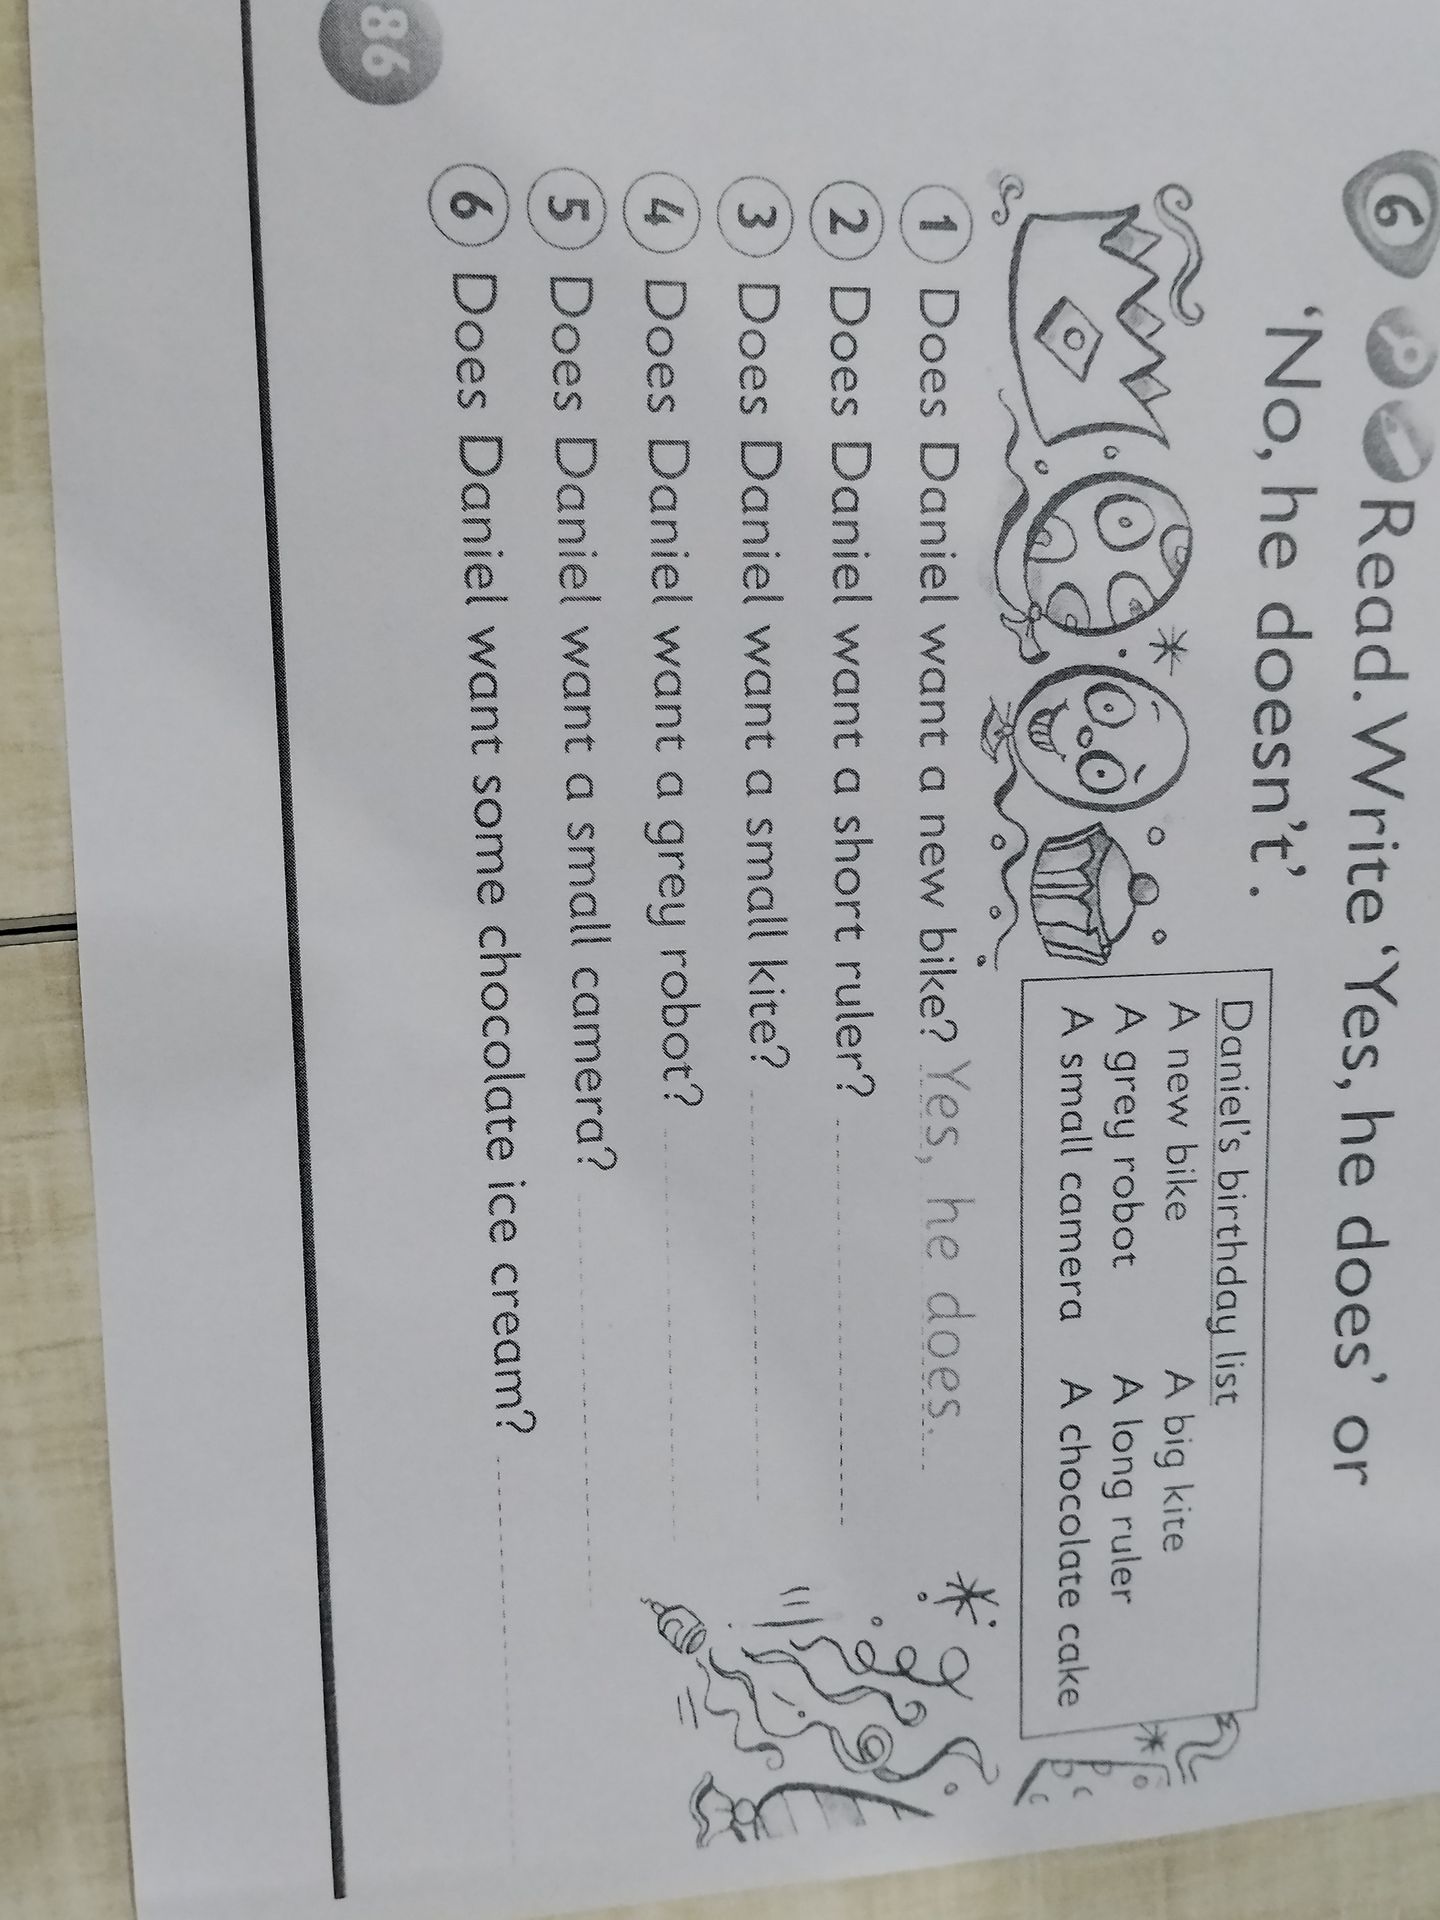 6 Read. Write ‘Yes, he does’ or
‘No, he doesn’t’.
Daniel’s birthday list
A new bike A big kite
A grey robot A long ruler
A small camera A chocolate cake
1 Does Daniel want a new bike? Yes, he does.
2 Does Daniel want a short ruler?
3 Does Daniel want a small kite?
4 Does Daniel want a grey robot?
5 Does Daniel want a small camera?
6 Does Daniel want some chocolate ice cream?
86